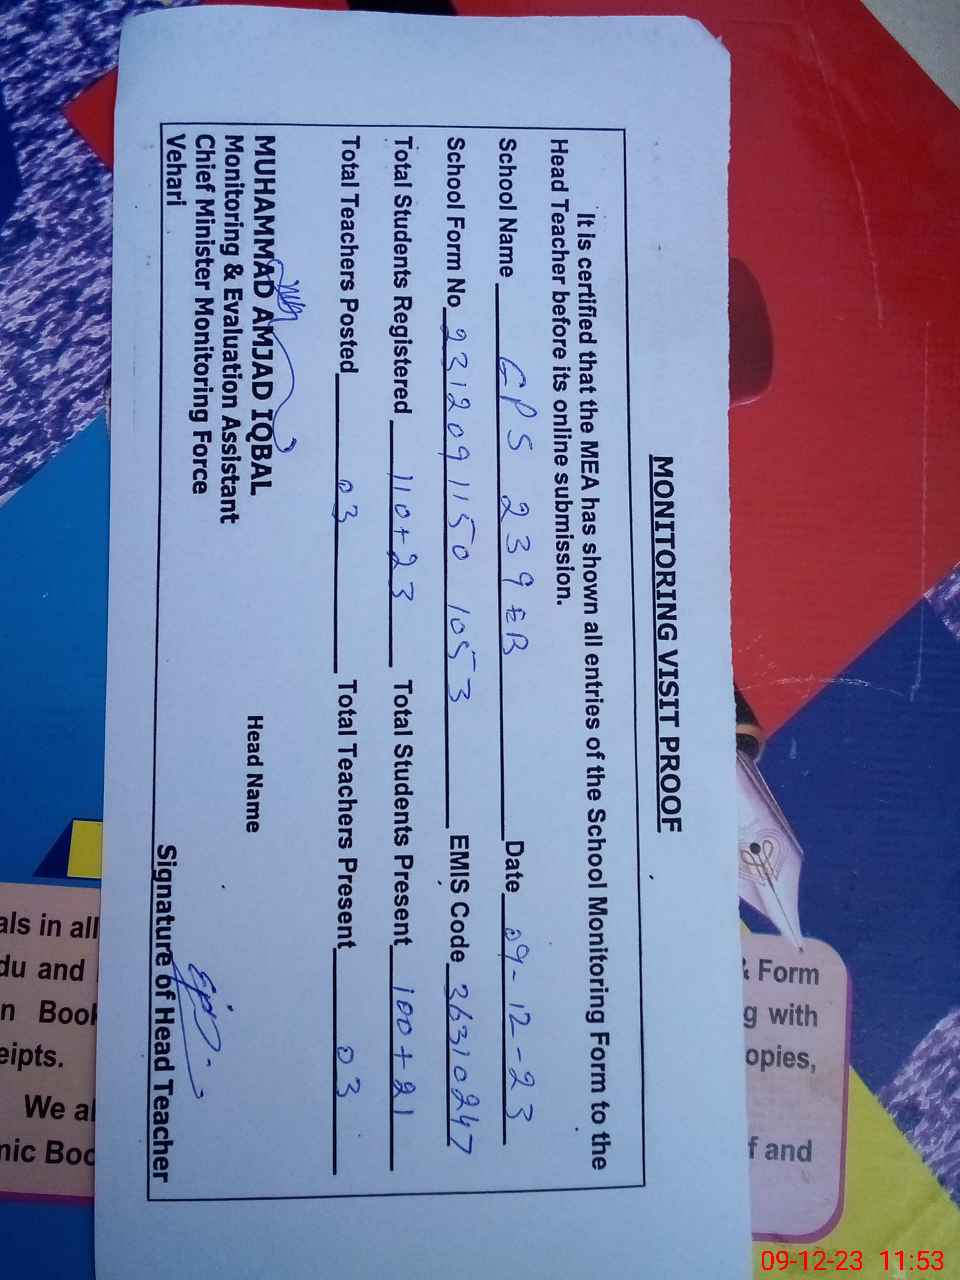 MONITORING VISIT PROOF
It is certified that the MEA has shown all entries of the School Monitoring Form to the
Head Teacher before its online submission.
School Name GPS 239 EB Date 09-12-23
School Form No 2312091150 1053 EMIS Code 36310247
Total Students Registered 110+23 Total Students Present 100+21
Total Teachers Posted 03 Total Teachers Present 03
MUHAMMAD AMJAD IQBAL
Monitoring & Evaluation Assistant Head Name
Chief Minister Monitoring Force
Vehari Signature of Head Teacher
als in all
du and
n Book
eipts.
We al
mic Boo
& Form
g with
opies,
f and
09-12-23 11:53